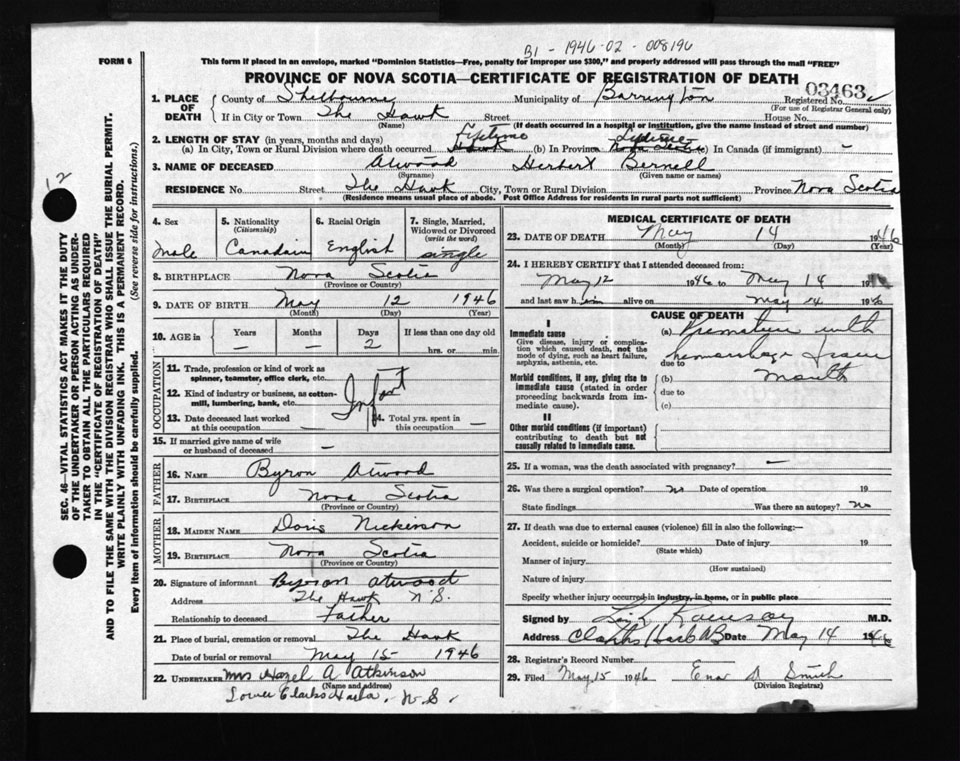 B1 - 1946-02 - 008196
FORM 6
This form if placed in an envelope, marked "Dominion Statistics—Free, penalty for improper use $300," and properly addressed will pass through the mail "FREE"
PROVINCE OF NOVA SCOTIA—CERTIFICATE OF REGISTRATION OF DEATH
03463
Registered No.
(For use of Registrar General only)
1. PLACE OF DEATH
County of Shelburne Municipality of Barrington
If in City or Town The Hawk Street House No.
(Name) (If death occurred in a hospital or institution, give the name instead of street and number)
2. LENGTH OF STAY (in years, months and days) Lifetime Lifetime
(a) In City, Town or Rural Division where death occurred Hawk (b) In Province Nova Scotia (c) In Canada (if immigrant) —
3. NAME OF DECEASED Atwood Herbert Bernell
(Surname) (Given name or names)
RESIDENCE No. Street The Hawk City, Town or Rural Division Province Nova Scotia
(Residence means usual place of abode. Post Office Address for residents in rural parts not sufficient)
4. Sex
male
5. Nationality
(Citizenship)
Canadain
6. Racial Origin
English
7. Single, Married, Widowed or Divorced
(write the word)
single
8. BIRTHPLACE Nova Scotia
(Province or Country)
9. DATE OF BIRTH May 12 1946
(Month) (Day) (Year)
10. AGE in
Years Months Days If less than one day old
— — 2 hrs. or min.
OCCUPATION
11. Trade, profession or kind of work as spinner, teamster, office clerk, etc.
12. Kind of industry or business, as cotton-mill, lumbering, bank, etc.
Infant
13. Date deceased last worked at this occupation
14. Total yrs. spent in this occupation —
15. If married give name of wife or husband of deceased —
FATHER
16. NAME Byron Atwood
17. BIRTHPLACE Nova Scotia
(Province or Country)
MOTHER
18. MAIDEN NAME Doris Nickerson
19. BIRTHPLACE Nova Scotia
(Province or Country)
20. Signature of informant Byron Atwood
Address The Hawk N.S.
Relationship to deceased Father
21. Place of burial, cremation or removal The Hawk
Date of burial or removal May 15 1946
22. UNDERTAKER Mrs Hazel A Atkinson
(Name and address)
Lower Clarks Harbor, N.S.
MEDICAL CERTIFICATE OF DEATH
23. DATE OF DEATH May 14 1946
(Month) (Day) (Year)
24. I HEREBY CERTIFY that I attended deceased from:
May 12 1946 to May 14 19
and last saw him alive on May 14 1946
CAUSE OF DEATH
I
Immediate cause
Give disease, injury or complication which caused death, not the mode of dying, such as heart failure, asphyxia, asthenia, etc.
(a) Premature with
hemorrhage from
due to
mouth
Morbid conditions, if any, giving rise to immediate cause (stated in order proceeding backwards from immediate cause).
(b)
due to
(c)
II
Other morbid conditions (if important) contributing to death but not causally related to immediate cause.
25. If a woman, was the death associated with pregnancy? —
26. Was there a surgical operation? no Date of operation 19
State findings Was there an autopsy? No
27. If death was due to external causes (violence) fill in also the following:—
Accident, suicide or homicide? Date of injury 19
(State which)
Manner of injury
(How sustained)
Nature of injury
Specify whether injury occurred in industry, in home, or in public place
Signed by M.D.
Address Clarks Harb Date May 14 1946
28. Registrar's Record Number
29. Filed May 15 1946 Smith
(Division Registrar)
12
SEC. 46—VITAL STATISTICS ACT MAKES IT THE DUTY
OF THE UNDERTAKER OR PERSON ACTING AS UNDER-
TAKER TO OBTAIN ALL THE PARTICULARS REQUIRED
IN THE "CERTIFICATE OF REGISTRATION OF DEATH"
AND TO FILE THE SAME WITH THE DIVISION REGISTRAR WHO SHALL ISSUE THE BURIAL PERMIT.
WRITE PLAINLY WITH UNFADING INK. THIS IS A PERMANENT RECORD.
Every item of information should be carefully supplied. (See reverse side for instructions.)